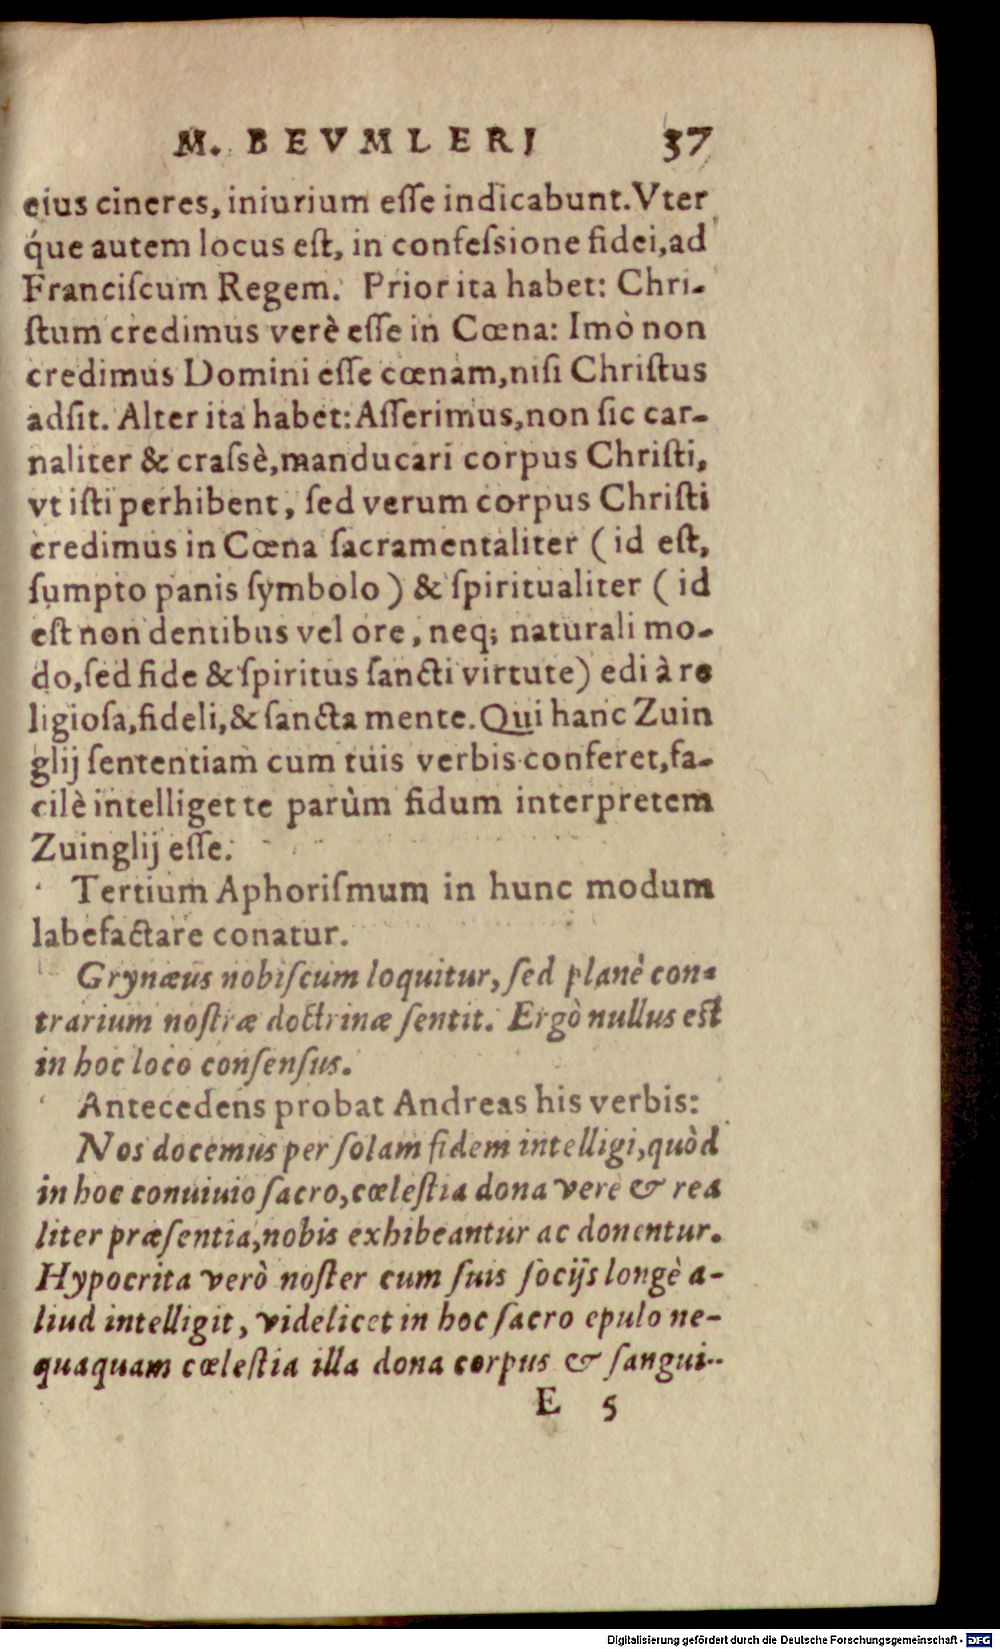 M. BEVMLERI 37
eius cineres, iniurium eſſe indicabunt. Vter
q́ue autem locus eſt, in confeſsione fidei, ad
Franciſcum Regem. Prior ita habet: Chri-
ſtum credimus verè eſſe in Cœna: Imò non
credimus Domini eſſe cœnam, niſi Chriſtus
adſit. Alter ita habet: Aſſerimus, non ſic car-
naliter & craſsè, manducari corpus Chriſti,
vt iſti perhibent, ſed verum corpus Chriſti
credimus in Cœna ſacramentaliter (id eſt,
ſumpto panis ſymbolo) & ſpiritualiter (id
eſt non dentibus vel ore, neq; naturali mo-
do, ſed fide & ſpiritus ſancti virtute) edi à re
ligioſa, fideli, & ſancta mente. Qui hanc Zuin
glij ſententiam cum tuis verbis conferet, fa-
cilè intelliget te parùm fidum interpretem
Zuinglij eſſe.
Tertium Aphoriſmum in hunc modum
labefactare conatur.
Grynæus nobiſcum loquitur, ſed planè con-
trarium noſtræ doctrinæ ſentit. Ergò nullus eſt
in hoc loco conſenſus.
Antecedens probat Andreas his verbis:
Nos docemus per ſolam fidem intelligi, quòd
in hoc conuiuio ſacro, cœleſtia dona verè & rea
liter præſentia, nobis exhibeantur ac donentur.
Hypocrita verò noſter cum ſuis ſocijs longè a-
liud intelligit, videlicet in hoc ſacro epulo ne-
quaquam cœleſtia illa dona corpus & ſangui-
E 5
Digitalisierung gefördert durch die Deutsche Forschungsgemeinschaft - DFG